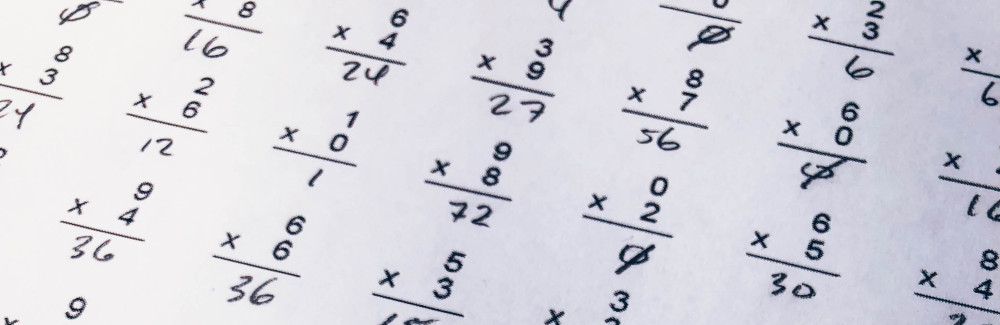 0
2
x 3
6
x
6
0
x 8
16
6
x 4
24
3
x 9
27
8
x 7
56
6
x 0
0
x
16
8
x 3
24
2
x 6
12
1
x 0
1
9
x 8
72
0
x 2
0
6
x 5
30
8
x 4
9
x 4
36
6
x 6
36
5
x 3
3
x
9
x